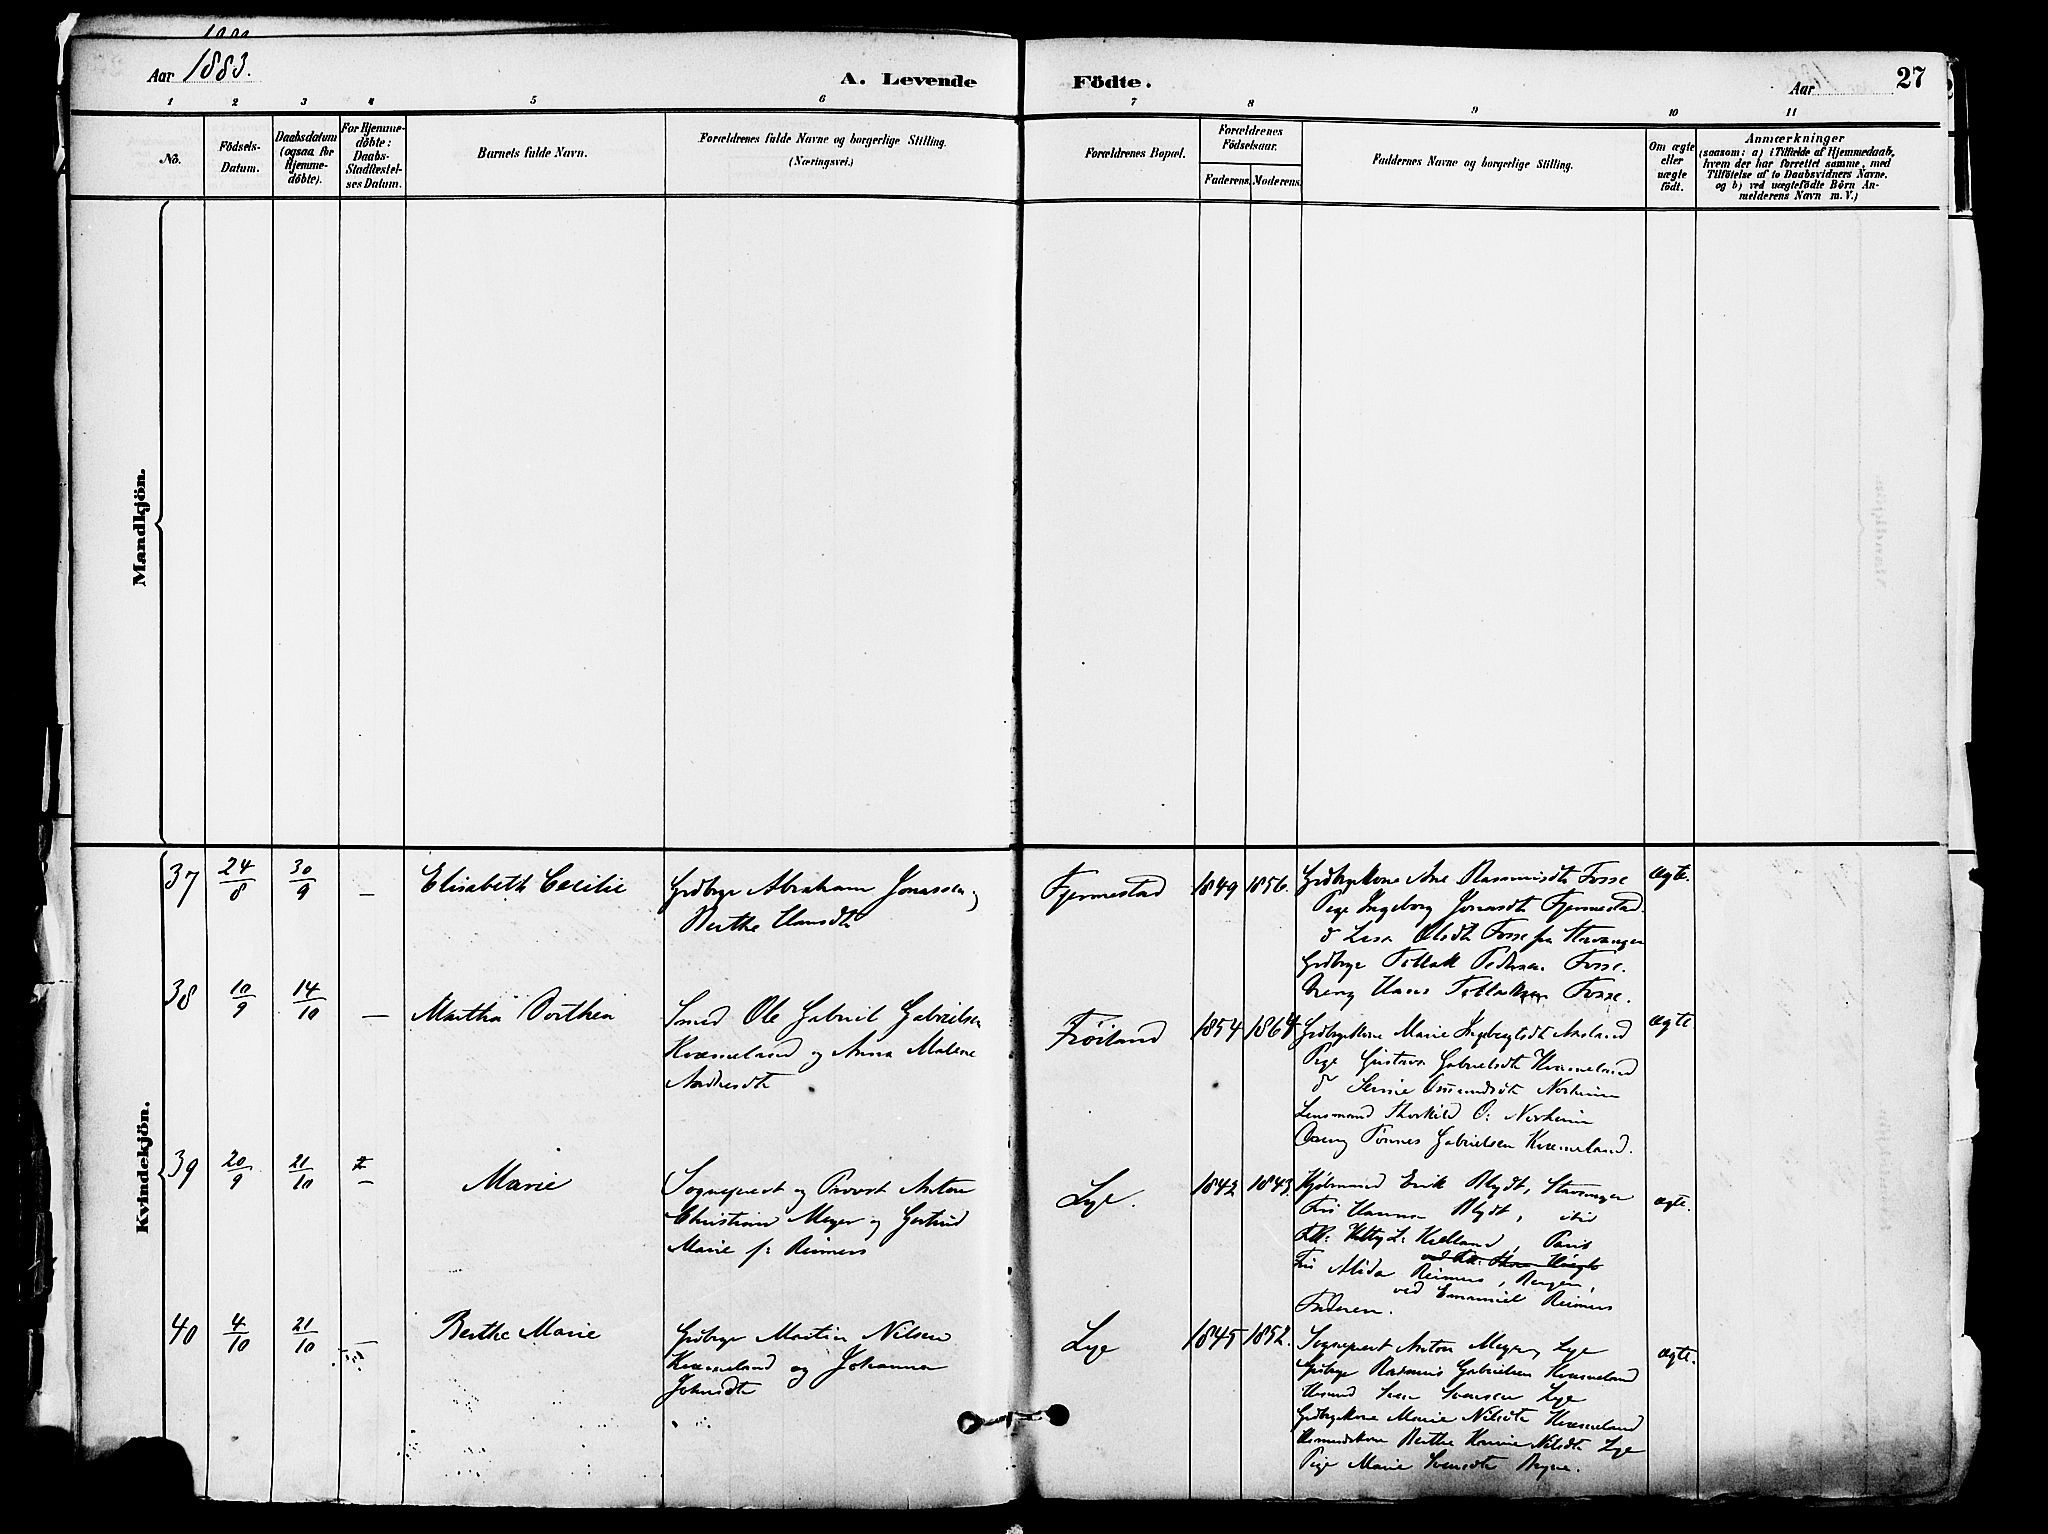 Aar 1883.
A. Levende
Födte.
Aar
27
1 2 3 4 5 6 7 8 9 10 11
No.
Födsels-
Datum.
Daabsdatum
(ogsaa for
Hjemme-
döbte).
For Hjemme-
döbte:
Daabs-
Stadfæstel-
ses Datum.
Barnets fulde Navn.
Forældrenes fulde Navne og borgerlige Stilling.
(Næringsvei.)
Forældrenes Bopæl.
Forældrenes
Födselsaar.
Faderens.
Moderens.
Faddernes Navne og borgerlige Stilling.
Om ægte
eller
uægte
födt.
Anmærkninger
(saasom: a) i Tilfælde af Hjemmedaab,
hvem der har forrettet samme, med
Tilföielse af to Daabsvidners Navne.
og b) ved uægtefödte Börn An-
melderens Navn m. V.)
Mandkjön.
Kvindekjön.
37 24/8 30/9 — Elisabeth Cecilie
Grdbrge Abraham Jonassen,
Berthe Hansdt
Fjermestad 1849 1856.
Grdbrgkone Ane Rasmusdt Fosse
Pige Ingeborg Jonasdt Fjermestad.
d Lisa Olsdt Fosse fra Stavanger
Grdbrge Tollak Pedersen Fosse.
Ung Hans Tollaksen Fosse.
ægte.
38 10/9 14/10 — Martha Dorthea
Smed Ole Gabriel Gabrielsen
Kvæmeland og Anna Malene
Andresdt
Frøiland 1854 1864
Grdbrgkone Marie Ingebregtsdt Aasland
Pige Gustava Gabrielsdt Kvæmeland
d Serine Osmundsdt Norheim
Lensmand Thorkild O: Norheim
Ung Tønnes Gabrielsen Kvæmeland.
ægte
39 20/9 21/10 — Marie
Sognepræst og Provst Anton
Christian Meyer og Gertrud
Marie f: Reimers
Lye. 1842 1843.
Kjøbmand Erik Blydt, Stavanger
Fru Hanna Blydt, ibid
Frk: Kitty L: Kielland, Paris
Fru Alida Reimers, Bergen,
ved Emanuel Reimers
Faderen.
ægte.
40 4/10 21/10 — Berthe Marie
Grdbrge Martin Nilsen
Kvæmeland og Johanna
Johnsdt
Lye 1845 1852.
Sognepræst Anton Meyer, Lye
Grdbrge Rasmus Gabrielsen Kvæmeland
Husmd Sven Svensen Lye
Grdbrgkone Marie Nilsdt Kvæmeland
Husmdskone Berthe Karine Nilsdt Lye
Pige Marie Svensdt Bryne.
ægte.